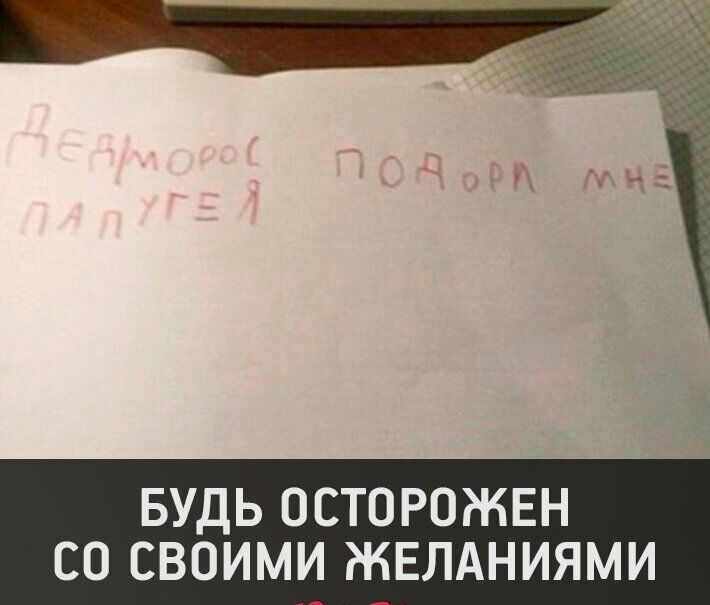 ДЕДМОРОС ПОДОРИ МНЕ
ПАПУГЕЯ
БУДЬ ОСТОРОЖЕН
СО СВОИМИ ЖЕЛАНИЯМИ